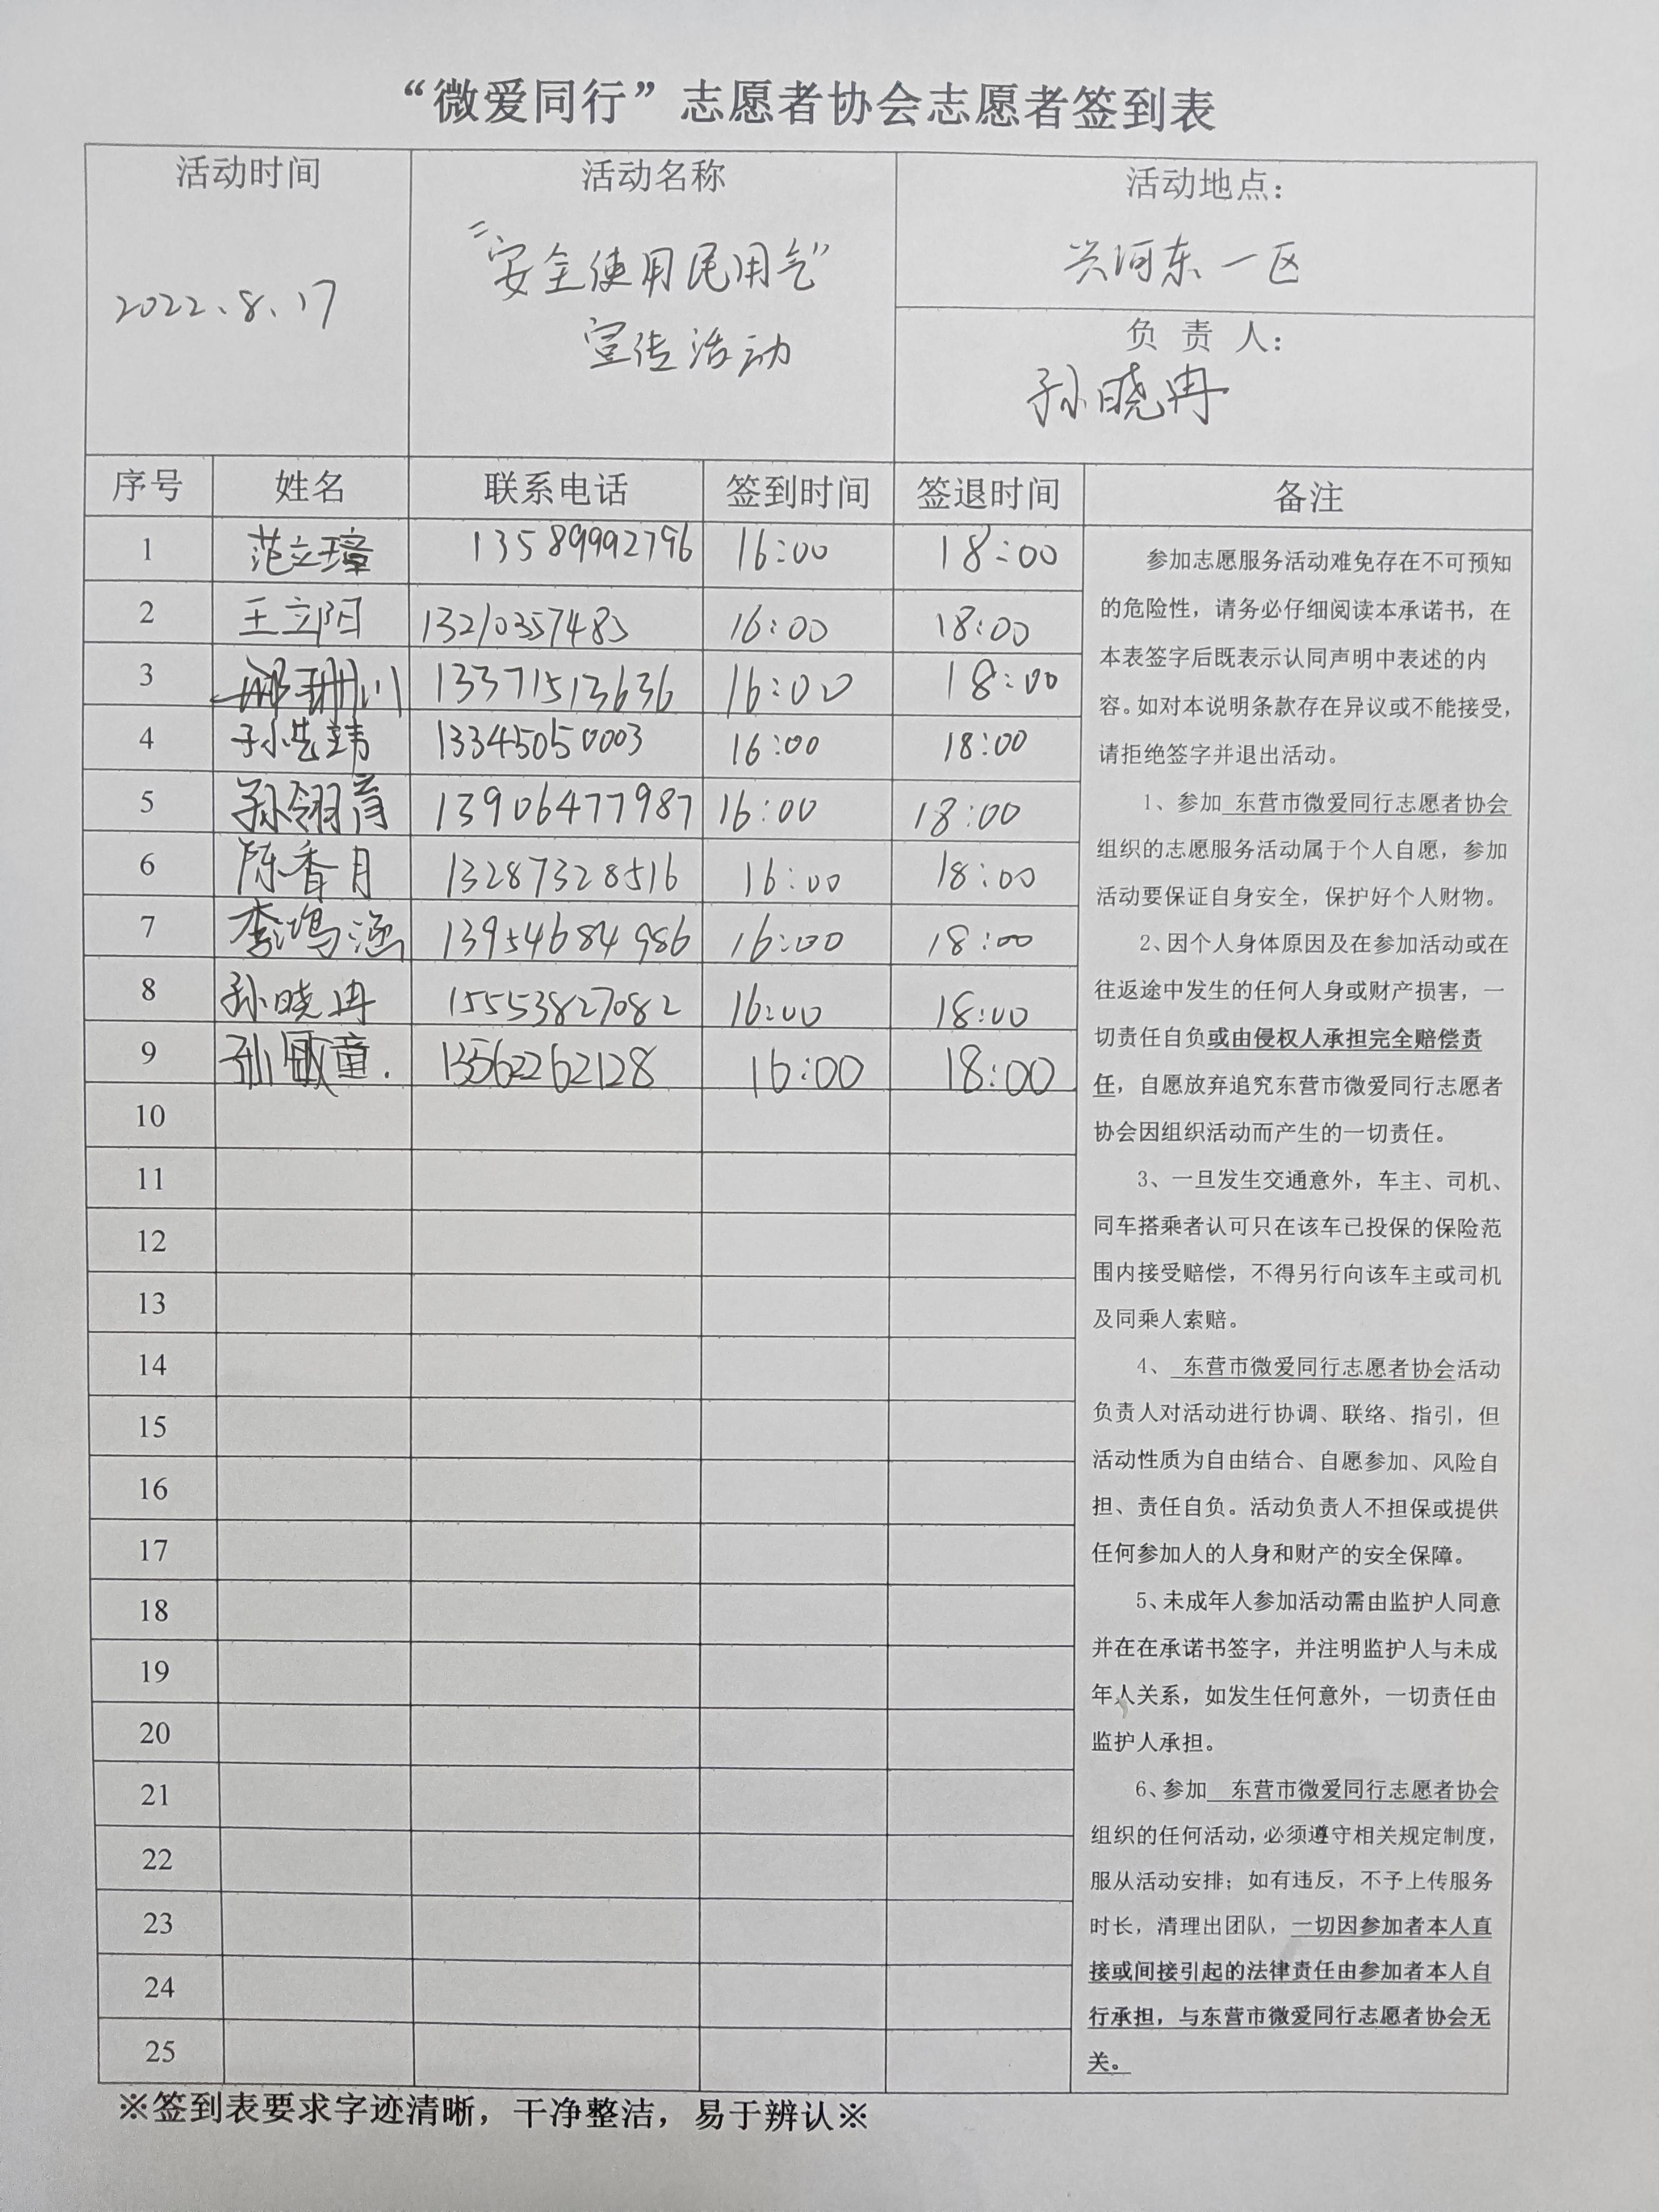 “微爱同行”志愿者协会志愿者签到表
活动时间
2022.8.17
活动名称
“安全使用民用气”
宣传活动
活动地点：
兴河东一区
负 责 人：
孙晓冉
序号 姓名 联系电话 签到时间 签退时间 备注
1 范立璋 13589992796 16:00 18:00
2 王立阳 13210357485 16:00 18:00
3 13371513636 16:00 18:00
4 13345050003 16:00 18:00
5 孙翎育 13906477987 16:00 18:00
6 陈香月 13287328516 16:00 18:00
7 李鸿涵 13954684986 16:00 18:00
8 孙晓冉 15553827082 16:00 18:00
9 13562262128 16:00 18:00
10
11
12
13
14
15
16
17
18
19
20
21
22
23
24
25
参加志愿服务活动难免存在不可预知
的危险性，请务必仔细阅读本承诺书，在
本表签字后既表示认同声明中表述的内
容。如对本说明条款存在异议或不能接受，
请拒绝签字并退出活动。
1、参加 东营市微爱同行志愿者协会
组织的志愿服务活动属于个人自愿，参加
活动要保证自身安全，保护好个人财物。
2、因个人身体原因及在参加活动或在
往返途中发生的任何人身或财产损害，一
切责任自负或由侵权人承担完全赔偿责
任，自愿放弃追究东营市微爱同行志愿者
协会因组织活动而产生的一切责任。
3、一旦发生交通意外，车主、司机、
同车搭乘者认可只在该车已投保的保险范
围内接受赔偿，不得另行向该车主或司机
及同乘人索赔。
4、 东营市微爱同行志愿者协会活动
负责人对活动进行协调、联络、指引，但
活动性质为自由结合、自愿参加、风险自
担、责任自负。活动负责人不担保或提供
任何参加人的人身和财产的安全保障。
5、未成年人参加活动需由监护人同意
并在在承诺书签字，并注明监护人与未成
年人关系，如发生任何意外，一切责任由
监护人承担。
6、参加 东营市微爱同行志愿者协会
组织的任何活动，必须遵守相关规定制度，
服从活动安排；如有违反，不予上传服务
时长，清理出团队，一切因参加者本人直
接或间接引起的法律责任由参加者本人自
行承担，与东营市微爱同行志愿者协会无
关。
※签到表要求字迹清晰，干净整洁，易于辨认※